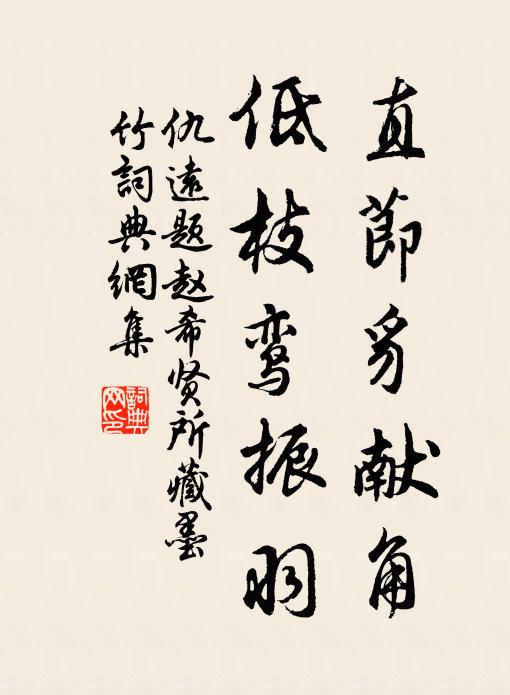 直節豸献角
低枝鸾振羽
仇遠题赵希贤所藏墨
竹詞典網集
詞典
网印